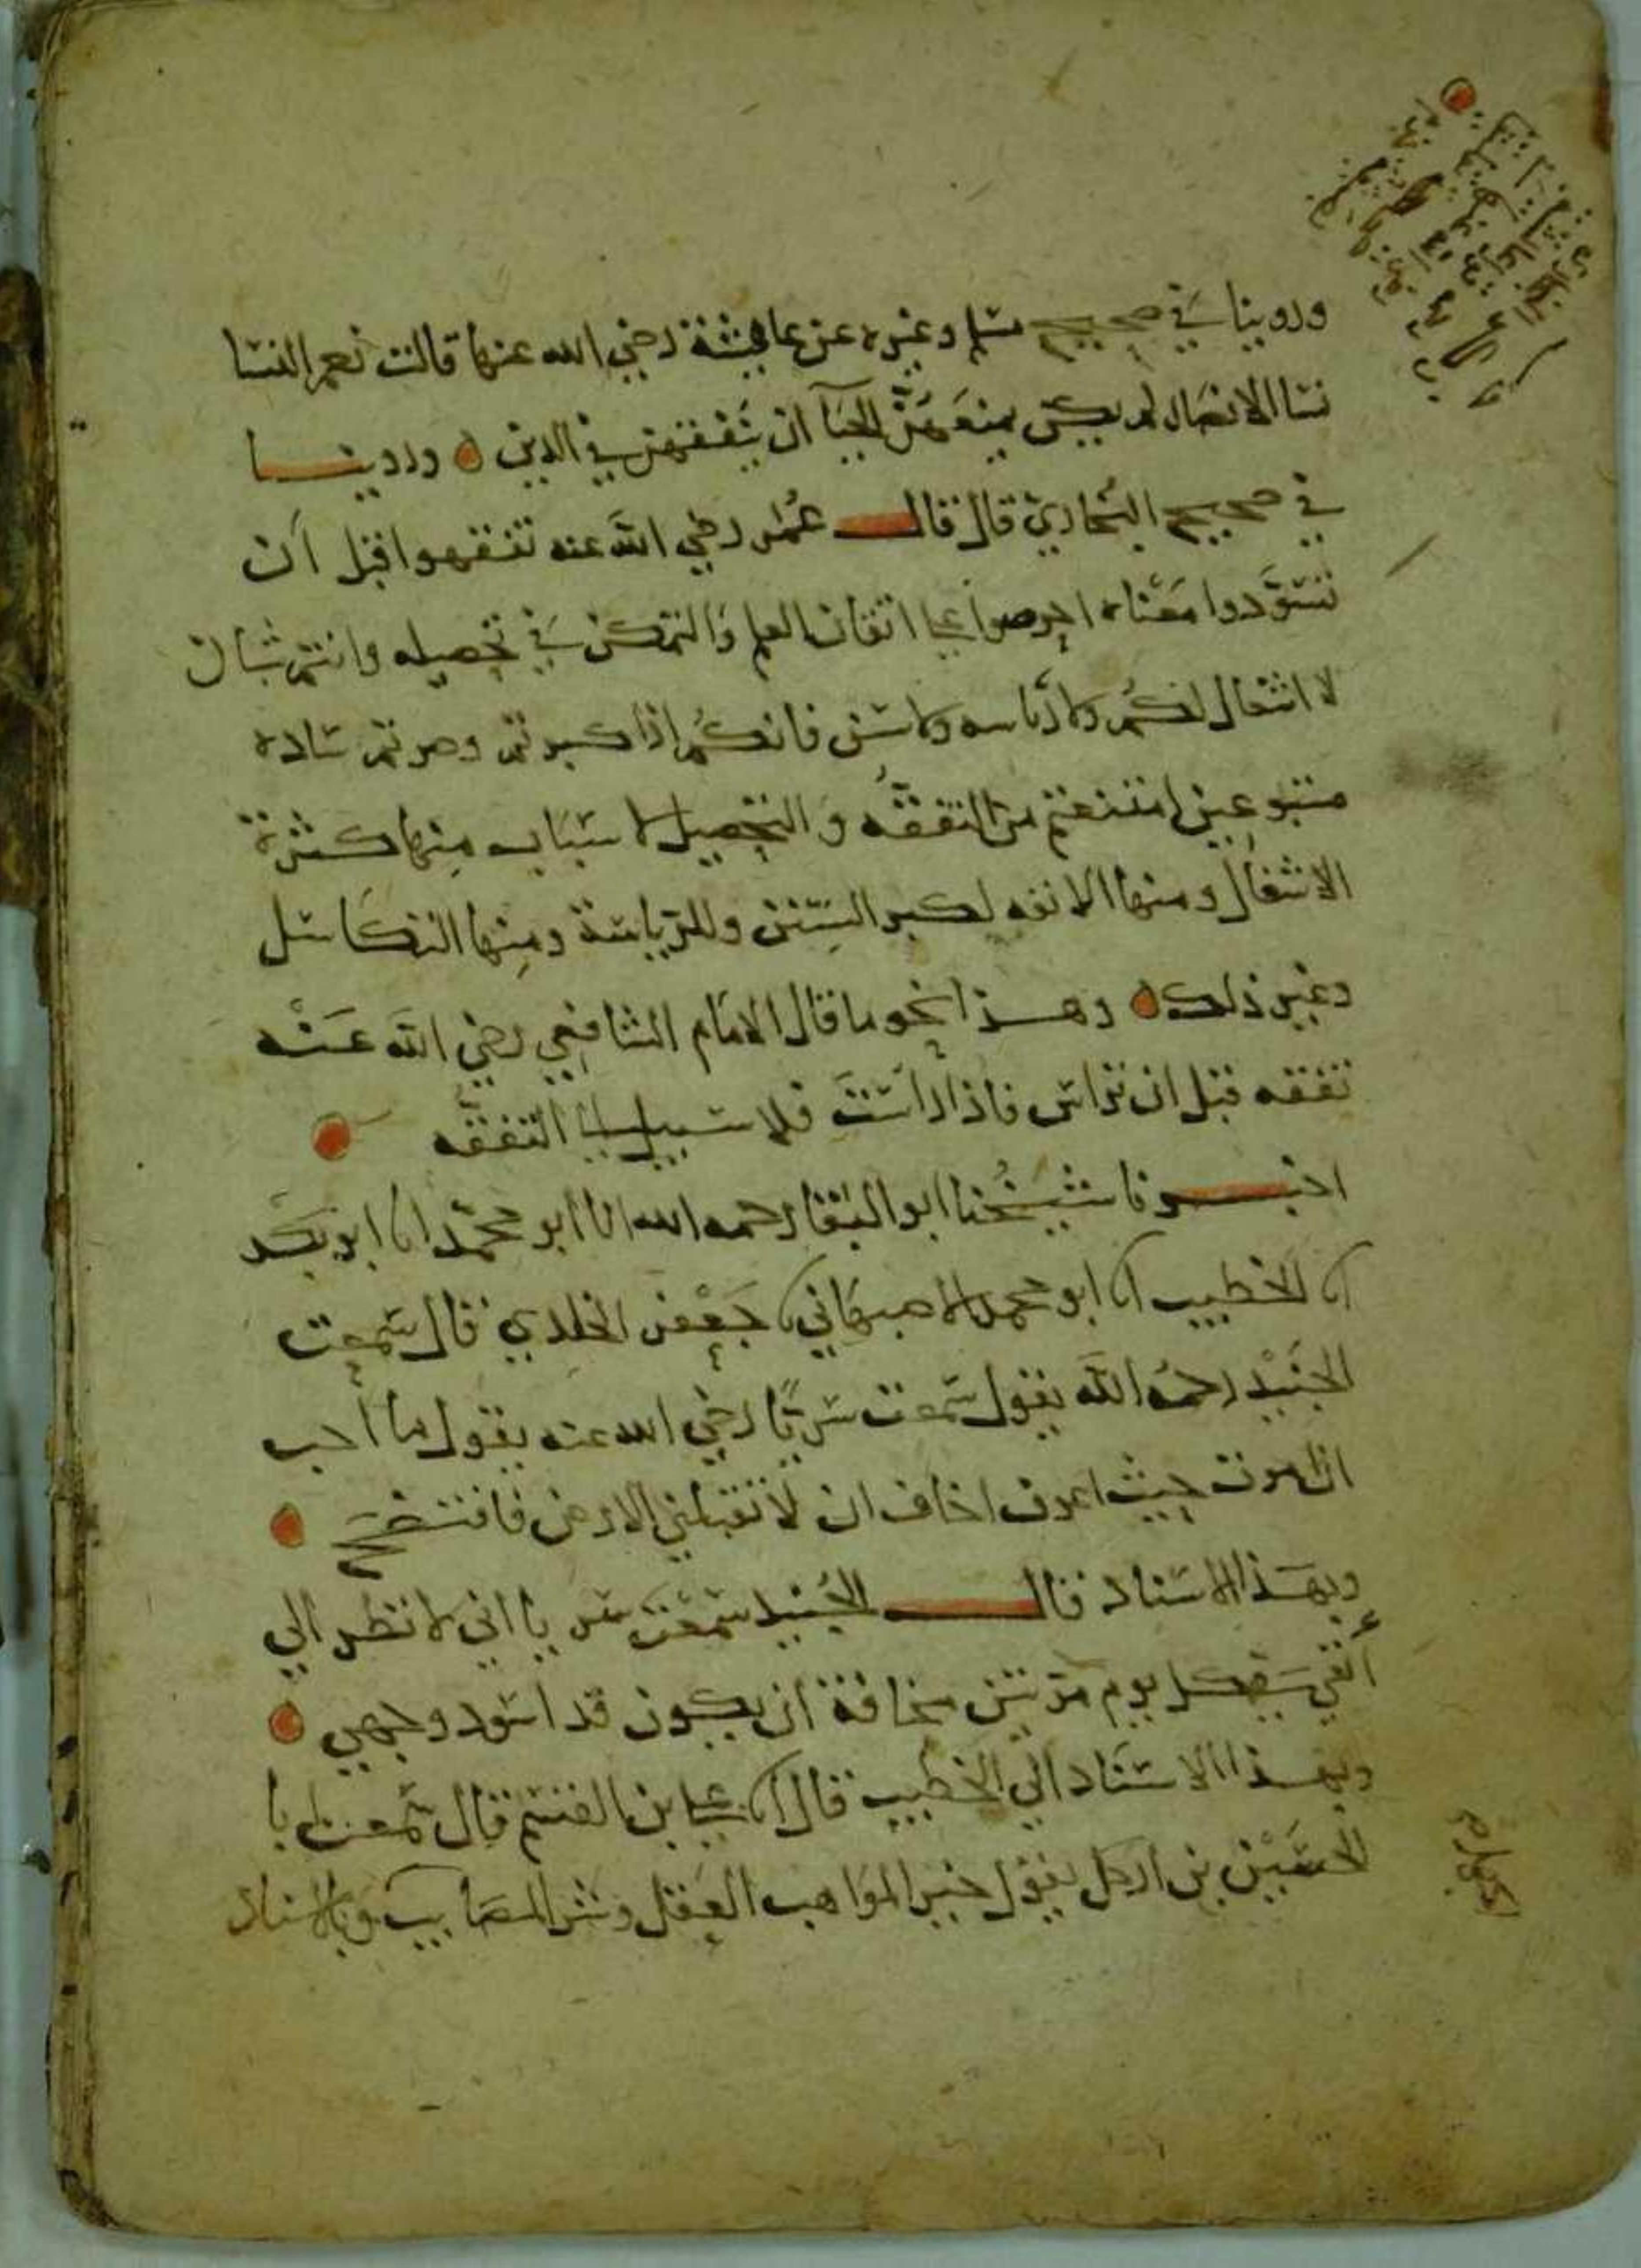 وروينا في صحيح مسلم وغيره عن عايشة رضي الله عنها قالت نعم النسا
نسا الانصار لم يكن يمنعهن الحيا ان يتفقهن في الدين ه وروينا
في صحيح البخاري قال قال عمر رضي الله عنه تفقهوا قبل ان
تسودوا معناه احرصوا على اتقان العلم والتمكن في تحصيله وانتم شبان
لا اشغال لكم ولا رياسه ولا سن فانكم اذا كبرتم وصرتم ساده
متبوعين امتنعتم من التفقه والتحصيل لاسباب منها كثرة
الاشغال ومنها الانفه لكبر السن وللرياسة ومنها التكاسل
وغير ذلك ه وهذا نحو ما قال الامام الشافعي رضي الله عنه
تفقه قبل ان تراس فاذا راست فلا سبيل الى التفقه
اخبرنا شيخنا ابو البقا رحمه الله انا ابو محمد انا ابو بكر
انا الخطيب انا ابو محمد الاصبهاني انا جعفر الخلدي قال سمعت
الجنيد رحمه الله يقول سمعت سريا رضي الله عنه يقول ما احب
ان اموت حيث اعرف اخاف ان لا تقبلني الارض فافتضح
وبهذا الاسناد قال الجنيد سمعت سريا اني لانظر الى
أنفي كل يوم مرتين مخافة ان يكون قد اسود وجهي
وبهذا الاسناد الى الخطيب قال انا علي بن القسم قال سمعت ابا
الحسين بن يقول خير المواهب العقل وشر المصايب وبالاسناد
الجهل ه